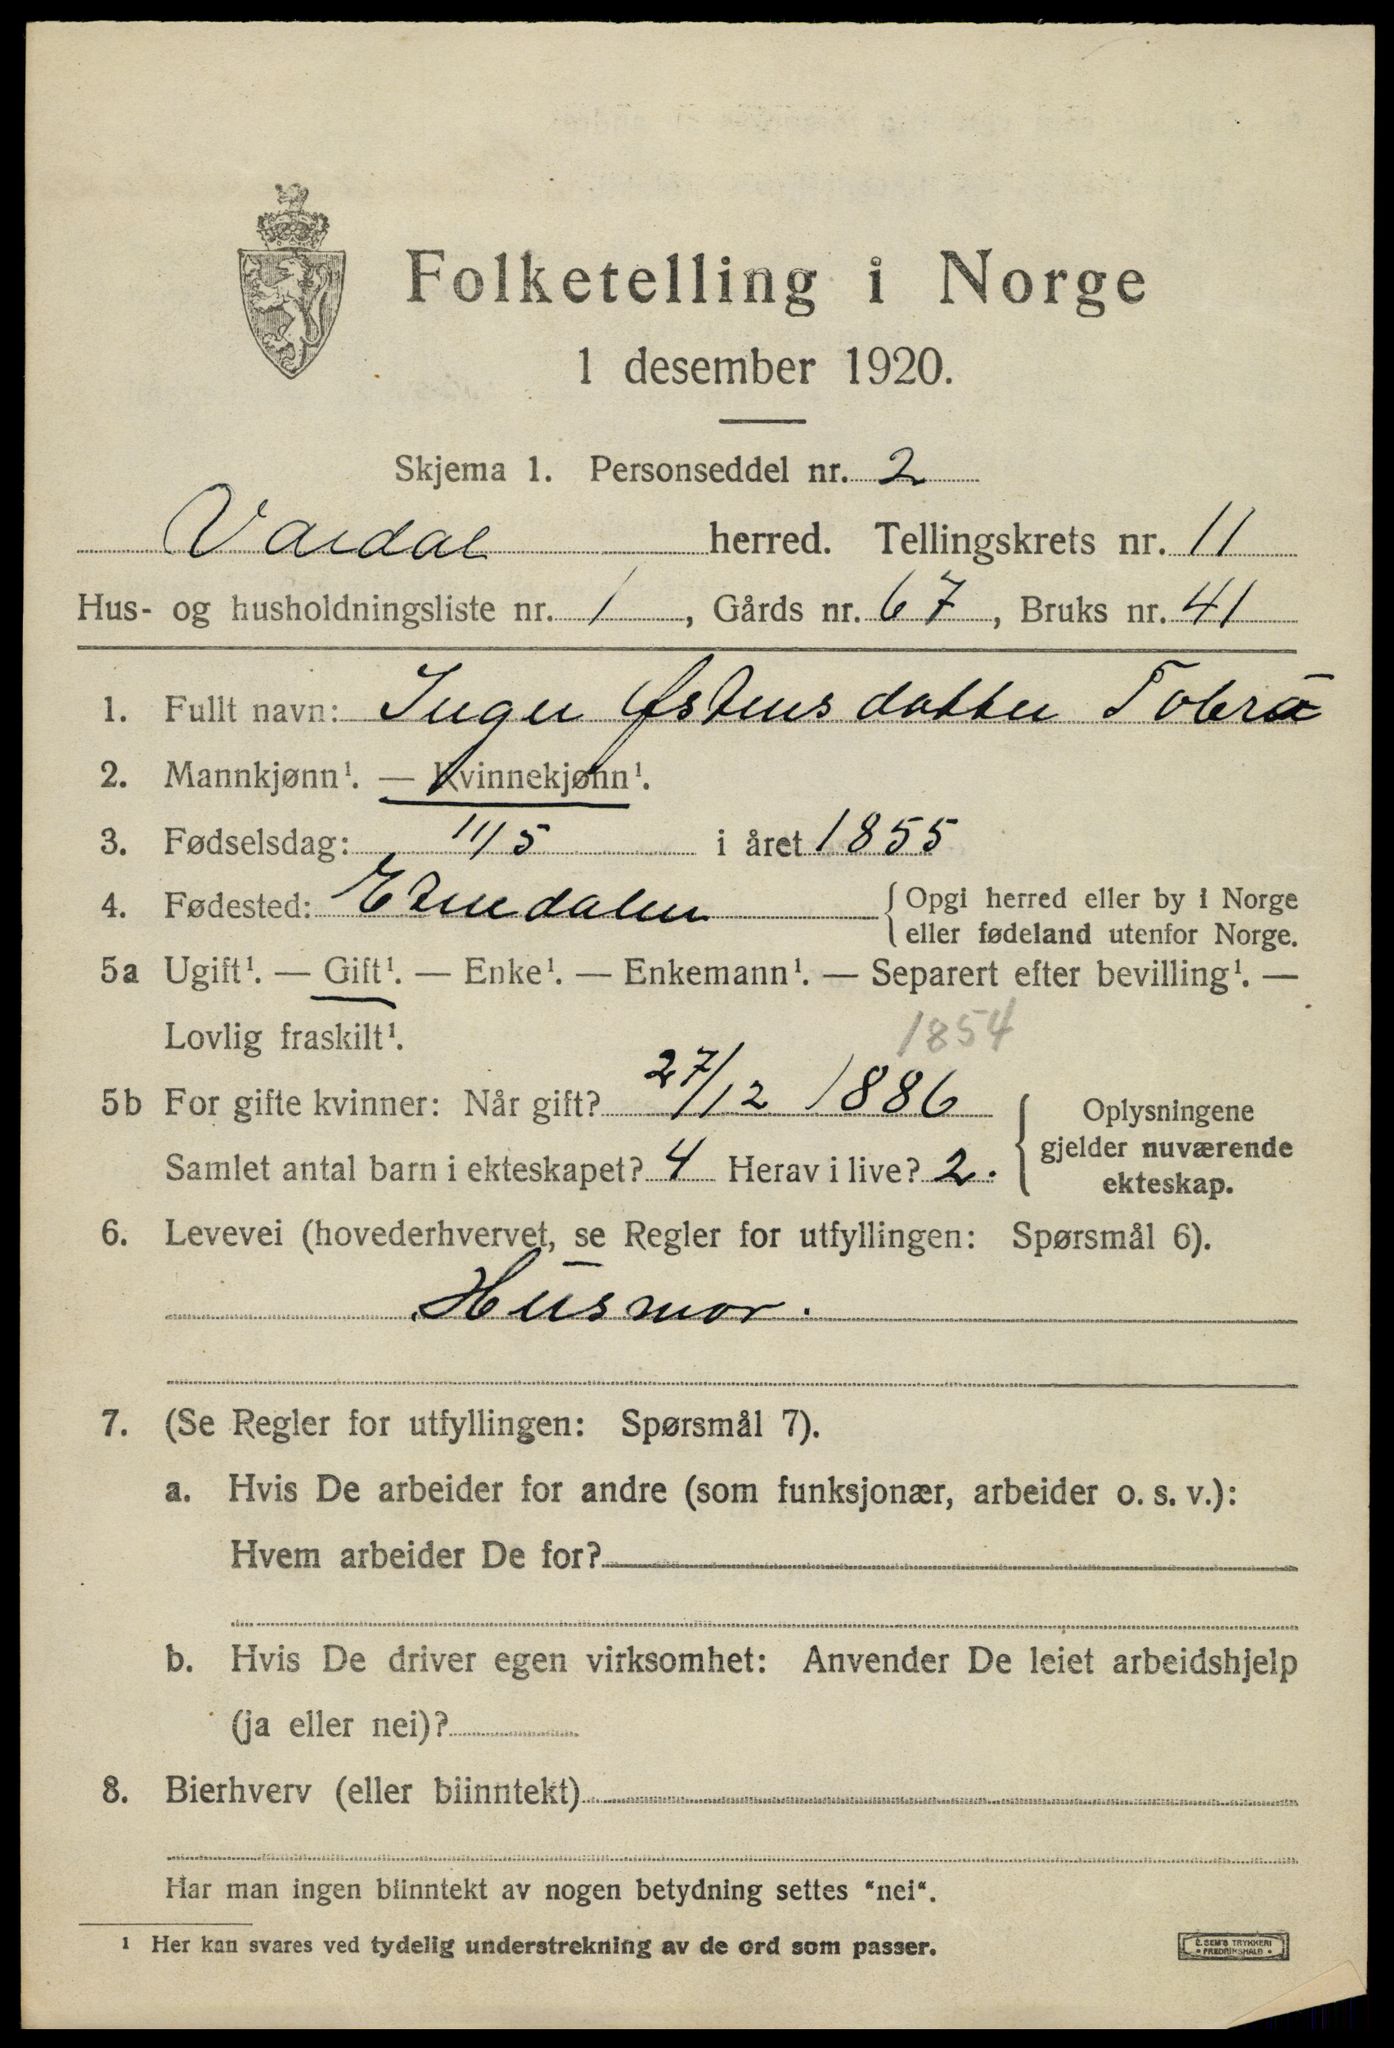 Folketelling i Norge
1 desember 1920.
Skjema 1. Personseddel nr. 2
Vardal herred. Tellingskrets nr. 11
Hus- og husholdningsliste nr. 1, Gårds nr. 67, Bruks nr. 41
1. Fullt navn: Inger Østensdatter Tobrå
2. Mannkjønn¹. — Kvinnekjønn¹.
3. Fødselsdag: 11/5 i året 1855
4. Fødested: Etnedalen {Opgi herred eller by i Norge
eller fødeland utenfor Norge.
5a Ugift¹. — Gift¹. — Enke¹. — Enkemann¹. — Separert efter bevilling¹. —
Lovlig fraskilt¹. 1854
5b For gifte kvinner: Når gift? 27/12 1886 { Oplysningene
Samlet antal barn i ekteskapet? 4 Herav i live? 2. gjelder nuværende
ekteskap.
6. Levevei (hovederhvervet, se Regler for utfyllingen: Spørsmål 6).
Husmor.
7. (Se Regler for utfyllingen: Spørsmål 7).
a. Hvis De arbeider for andre (som funksjonær, arbeider o. s. v.):
Hvem arbeider De for?
b. Hvis De driver egen virksomhet: Anvender De leiet arbeidshjelp
(ja eller nei)?
8. Bierhverv (eller biinntekt)
Har man ingen biinntekt av nogen betydning settes "nei".
¹ Her kan svares ved tydelig understrekning av de ord som passer.
E. SEM'S TRYKKERI
• FREDRIKSHALD •